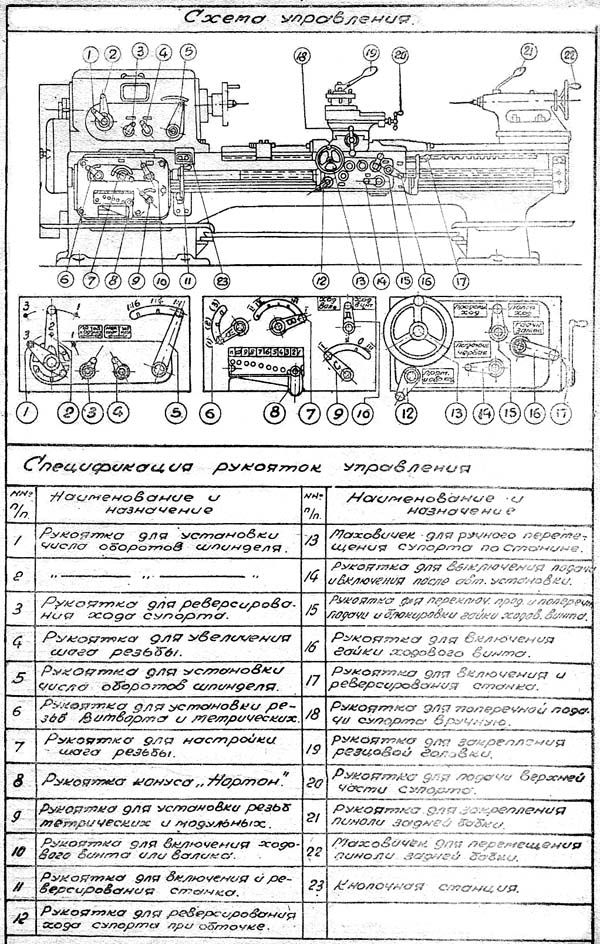 Схема управления.
1 2 3 4 5 18 19 20 21 22
6 7 8 9 10 11 23 12 13 14 15 16 17
3 1 1:16 1:4 1:1
3 2 1
(1) (2) (3) II I
0 II III
1 2 3 4 5 6 8 7 9 10 12 13 14 15 16 17
Спецификация рукояток управления
№№ п/п.
Наименование и назначение
№№ п/п.
Наименование и назначение
1 Рукоятка для установки
числа оборотов шпинделя.
2 —"— —"— "
3 Рукоятка для реверсирова-
ния хода супорта.
4 Рукоятка для увеличения
шага резьбы.
5 Рукоятка для установки
числа оборотов шпинделя.
6 Рукоятка для установки ре-
зьб Витварта и метрических.
7 Рукоятка для настройки
шага резьбы.
8 Рукоятка конуса „Нортон."
9 Рукоятка для установки резьб
метрических и модульных.
10 Рукоятка для включения ходо-
вого винта или валика.
11 Рукоятка для включения и ре-
версирования станка.
12 Рукоятка для реверсирования
хода супорта при обточке.
13 Маховичек для ручного переме-
щения супорта по станине.
14 Рукоятка для выключения подачи
и включения после авт. установки.
15 Рукоятка для переключ. прод. и попереч.
подачи и блокировки гайки ходов. винта.
16 Рукоятка для включения
гайки ходового винта.
17 Рукоятка для включения и
реверсирования станка.
18 Рукоятка для поперечной пода-
чи супорта вручную.
19 Рукоятка для закрепления
резцовой головки.
20 Рукоятка для подачи верхней
части супорта.
21 Рукоятка для закрепления
пиноли задней бабки.
22 Маховичек для перемещения
пиноли задней бабки.
23 Кнопочная станция.